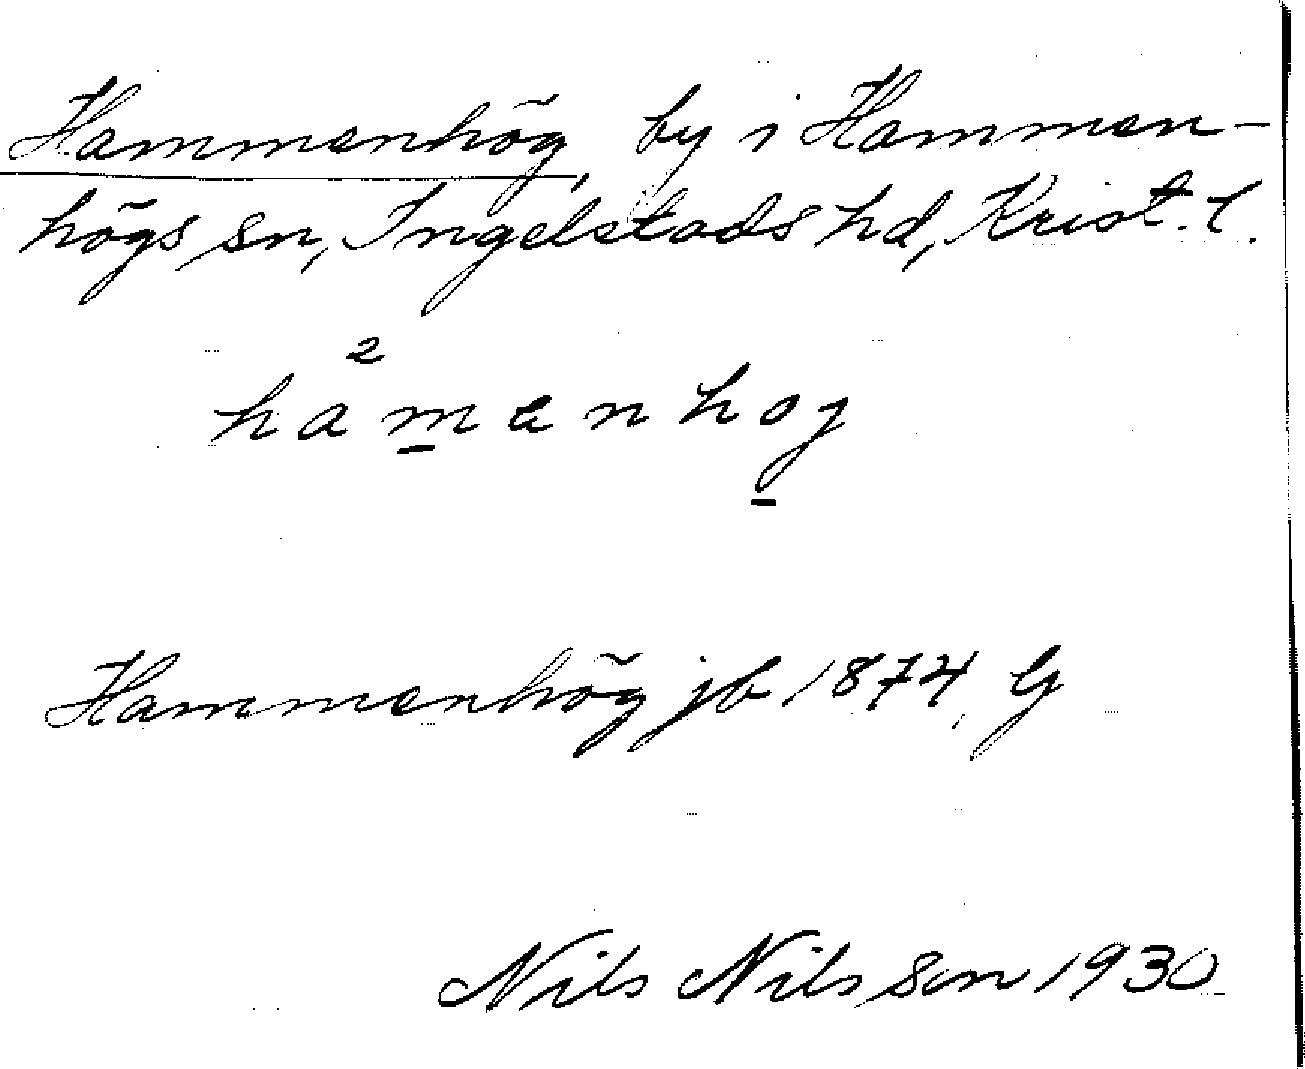 Hammenhög, by i Hammen-
högs sn, Ingelstads hd, Krist. l.
2
hamanhoj
Hammenhög jb 1874, G
Nils Nilsson 1930